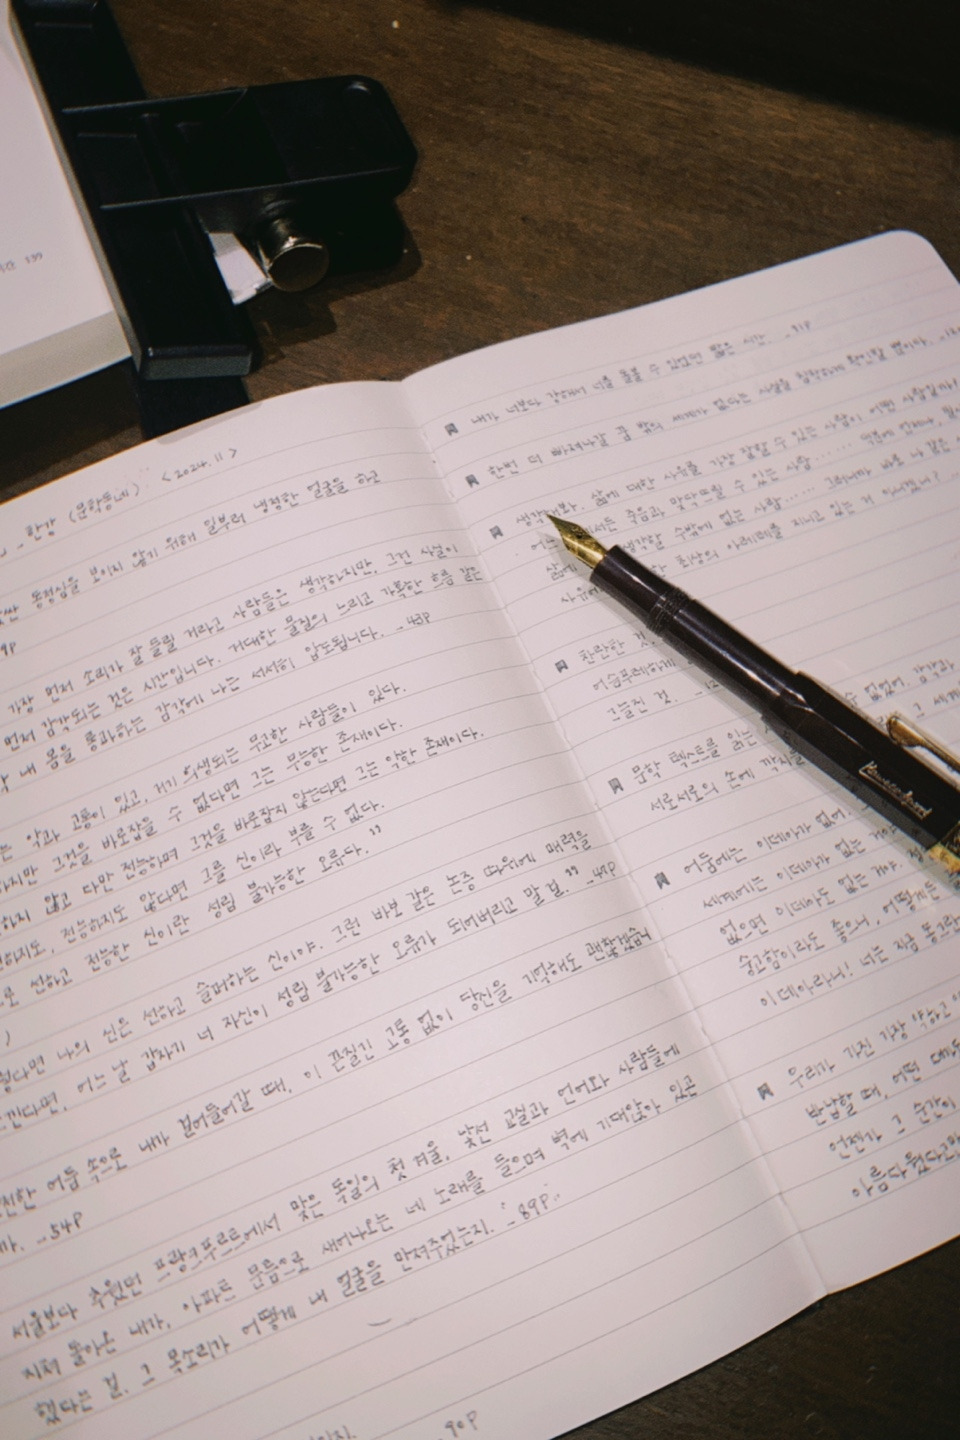 199
_ 한강 (문학동네) <2024.11>
동정심을 보이지 않기 위해 일부러 냉정한 얼굴을 하고
9P
가장 먼저 소리가 잘 들릴 거라고 사람들은 생각하지만, 그건 사실이
먼저 감각되는 것은 시간입니다. 거대한 물질의 느리고 가혹한 흐름 같은
내 몸을 통과하는 감각에 나는 서서히 압도됩니다. _43P
는 악과 고통이 있고, 거기 희생되는 무고한 사람들이 있다.
하지만 그것을 바로잡을 수 없다면 그는 무능한 존재이다.
하지 않고 다만 전능하며 그것을 바로잡지 않는다면 그는 악한 존재이다.
하지도, 전능하지도 않다면 그를 신이라 부를 수 없다.
로 선하고 전능한 신이란 성립 불가능한 오류다."
)
다면 나의 신은 선하고 슬퍼하는 신이야. 그런 바보 같은 논증 따위에 매력을
낀다면, 어느 날 갑자기 너 자신이 성립 불가능한 오류가 되어버리고 말 걸." _41P
전한 어둠 속으로 내가 걸어들어갈 때, 이 끈질긴 고통 없이 당신을 기억해도 괜찮겠습니
까. _54P
서울보다 추웠던 프랑크푸르트에서 맞은 독일의 첫 겨울, 낯선 교실과 언어와 사람들에
지쳐 돌아온 내가, 아파트 문틈으로 새어나오는 네 노래를 들으며 벽에 기대앉아 있곤
했다는 걸. 그 목소리가 어떻게 내 얼굴을 만져주었는지. _89P.
_90P
내가 너보다 강해서 너를 돌볼 수 있었던 짧은 시간. _91P
한번 더 빠져나갈 꿈 밖의 세계가 없다는 사실을 침착하게 확인할 뿐이다.
생각해봐. 삶에 대한 사유를 가장 잘할 수 있는 사람이 어떤 사람일까?
어느 서든 죽음과 맞닥뜨릴 수 있는 사람 …… 덕분에 언제나,
삶에 생각할 수밖에 없는 사람 …… 그러니까 바로 나 같은
사유에 한 최상의 아레테를 지니고 있는 거 아니겠니?
찬란한 것,
어슴푸레하게
그늘진 것.
수 없었어. 감각과
문학 텍스트를 읽는
서로서로의 손에
어둠에는 이데아가 없어.
세계에는 이데아가 없는 거야.
없으면 이데아도 없는 거야.
숭고함이라도 좋으니, 어떻게든
이데아라니! 너는 지금 동그란
우리가 가진 가장 약하고
반납할 때, 어떤 대가도
언젠가 그 순간이
아름다웠다고
Kaweco Sport